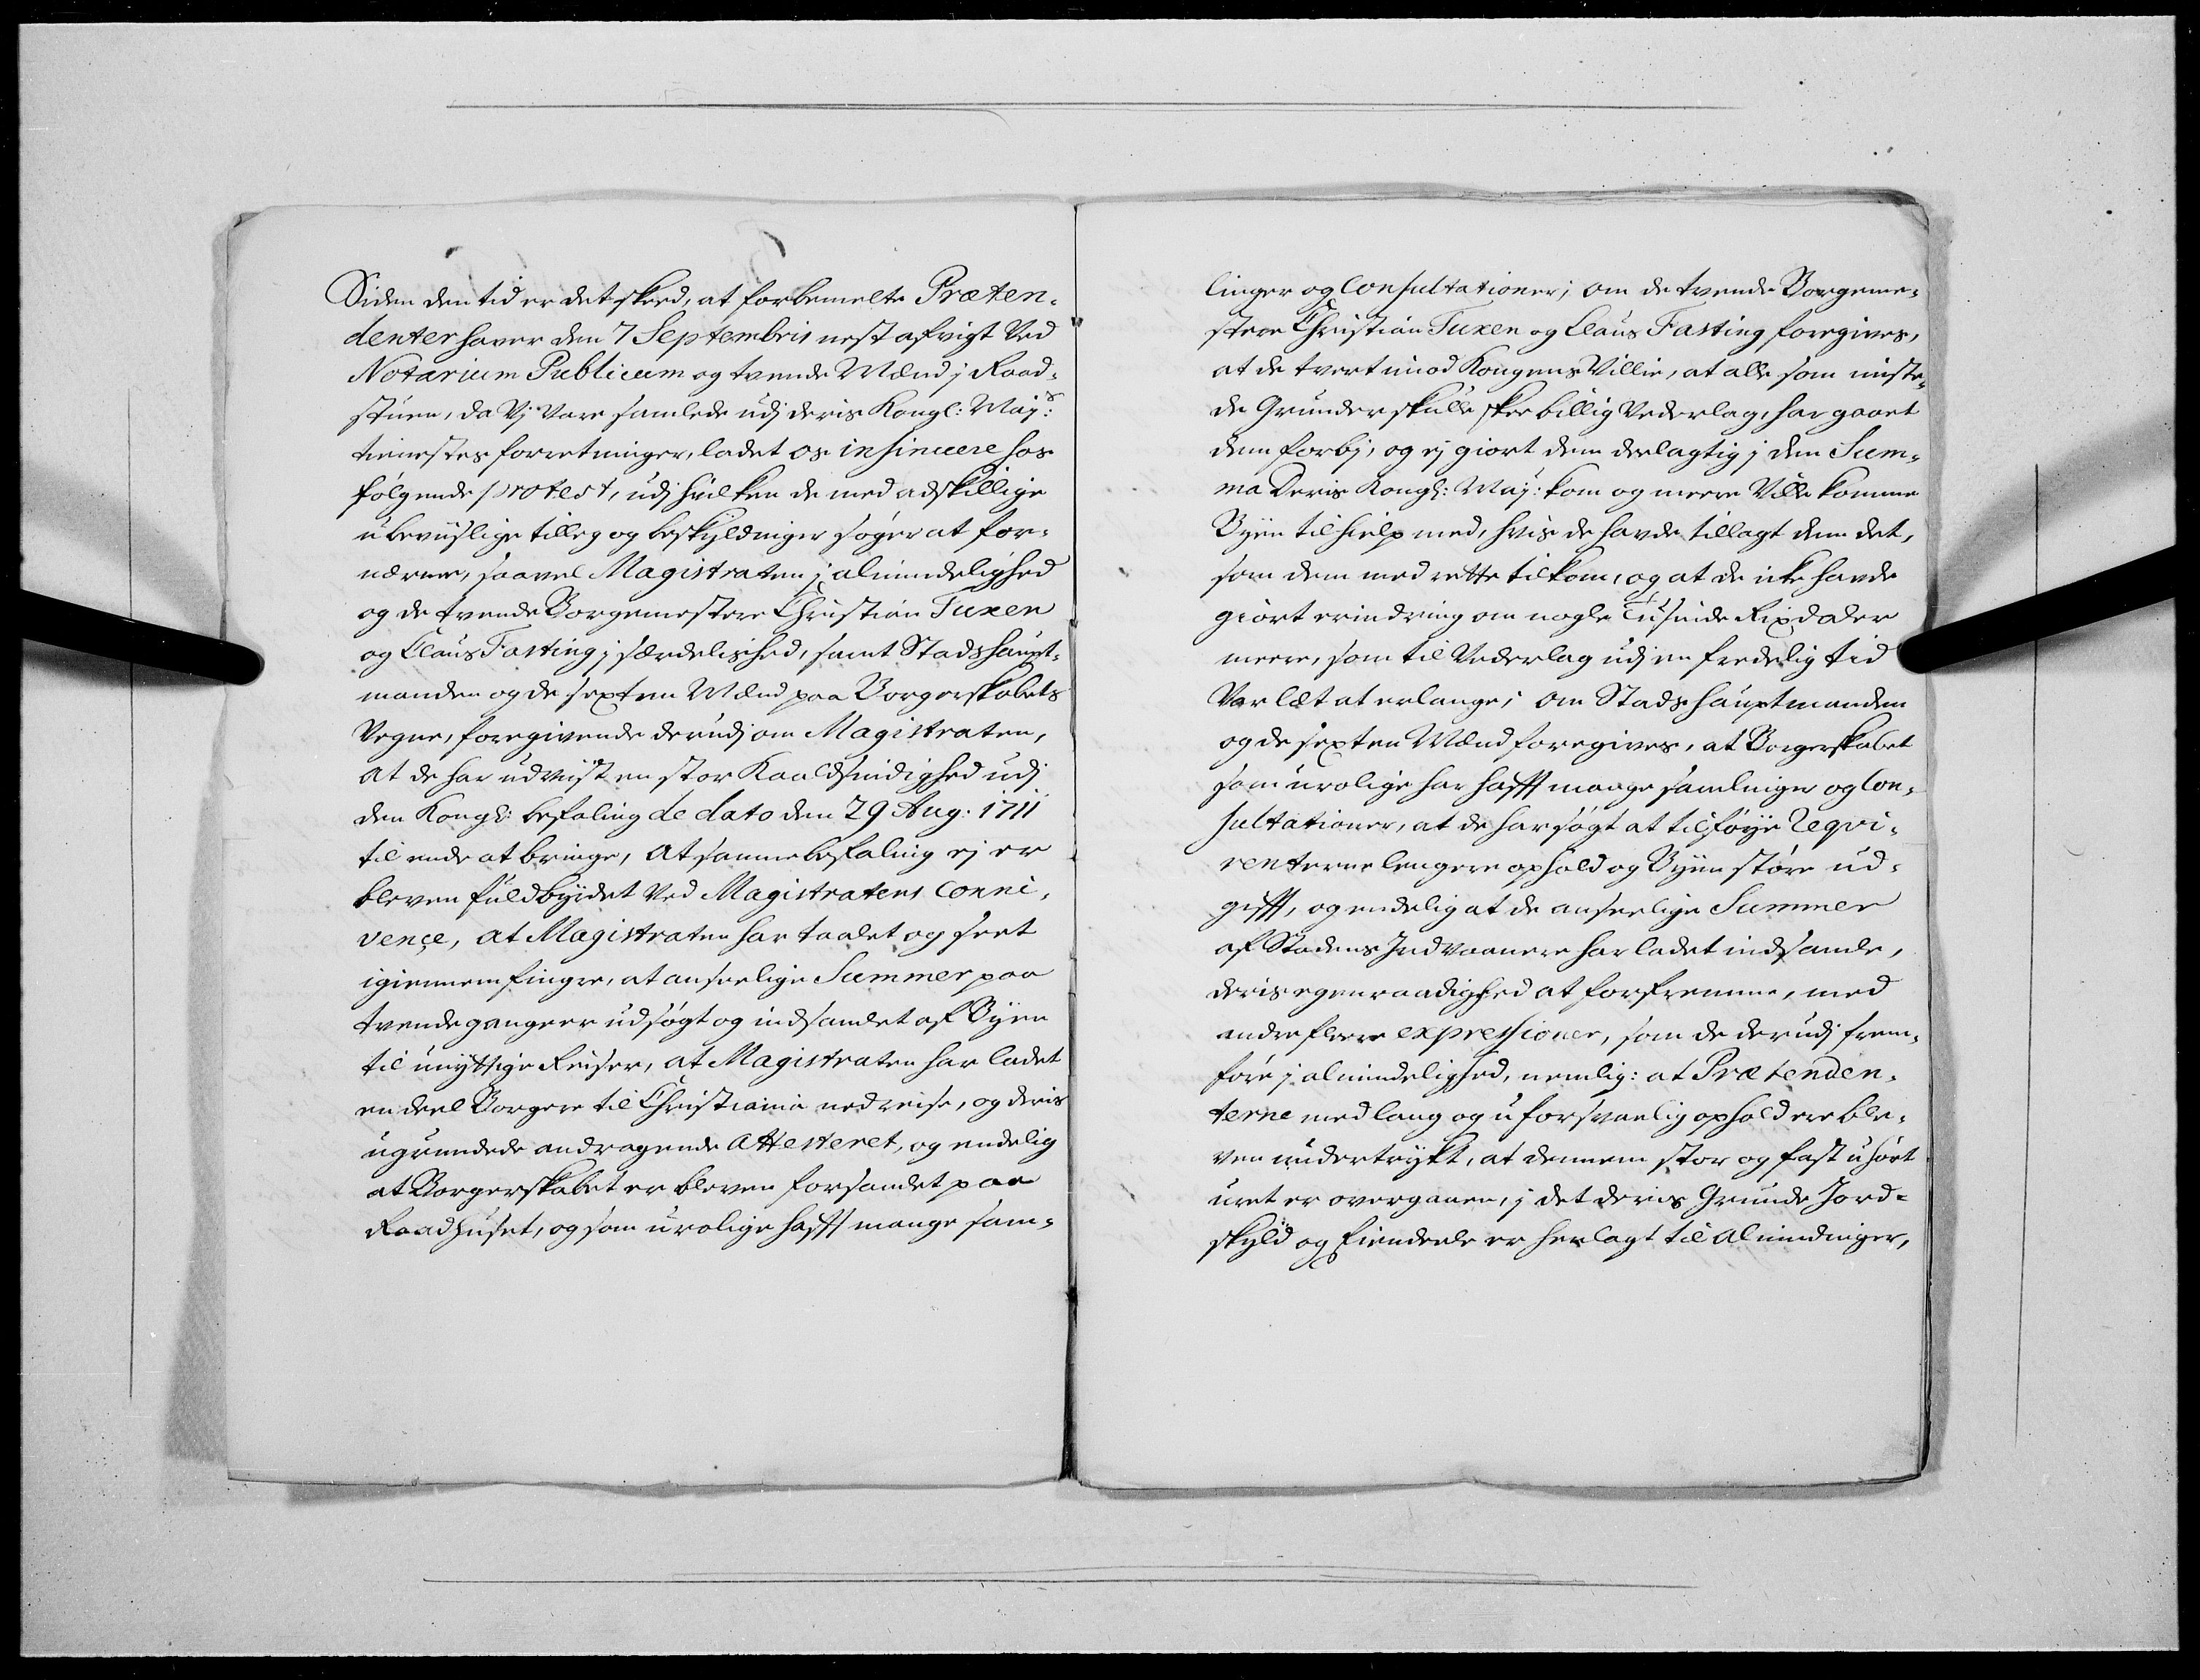 Siden den tid er det skeed, at forbemelte Præten-
denter haver den 7 Septembris nest afvigt Ved
Notarium Publicum og tvende Mænd j Raad-
stuen, da Vj Vare samlede udj deris Kongl: Maj:s
tienestes forretninger, ladet os insinuere hos
følgende protest, udj hvilken de med adskillige
ubeviislige tilleg og beskyldninger søger at for-
nærme, saavel Magistraten j almindelighed
og de tvende Borgemestere Christian Tuxen
og Claus Fasting j særdelished, samt Stadshaupt-
manden og de sexten Mænd paa Borgerskabets
Vegne, foregivende derudj om Magistraten,
at de har udviist en stor Kaaldsindighed udj
den Kongl: befaling de dato den 29 Aug: 1711
til ende at bringe, At samme befaling ej er
bleven fuldbyrdet Ved Magistratens Conni-
vençe, at Magistraten har taalet og seet
igiennem fingre, at anseelige Summer paa
tvende gange er udsøgt og indsamlet af Byen
til unyttige Reiser, at Magistraten har ladet
en deel Borgere til Christiania ned reise, og deris
ugrundede andragende Attesteret, og endelig
at Borgerskabet er bleven forsamlet paa
Raadhuset, og som urolige hafft mange sam-
linger og Consultationer; om de tvende Borgeme-
stere Christian Tuxen og Claus Fasting foregives,
at de tvert imod Kongens Villie, at alle som miste-
de Grunder skulle skee billig Vederlag, har gaaet
dem forbj, og ej giort dem deelagtig j den Sum-
ma Deris Kongl: Maj: kom og meere Ville komme
Byen til hielp med, hvis de havde tillagt dem det,
som dem med rette tilkom, og at de icke havde
giort erindring om nogle Tusinde Rixdaler
meere, som til Vederlag udj en fredelig tid
Var læt at erlange; om Stadshauptmanden
og de sexten Mænd foregives, at Borgerskabet
som urolige har hafft mange samlinger og Con-
sultationer, at de har søgt at tilføye Reqvi-
renterne lengere ophold og Byen større ud-
gifft, og endelig at de anseelige Summer
af Stadens Indvaanere har ladet indsamle,
deris egenraadighed at forfremme, med
andre fleere expressioner, som de derudj frem-
føre j almindelighed, nemlig: at Prætenden-
terne med lang og uforsvarlig ophold ere ble-
ven undertrykt, at dennem stor og fast uhørt
uret er overgaaen, j det deris Grunde Jord-
skyld og Eiendeele er henlagt til Almindinger,